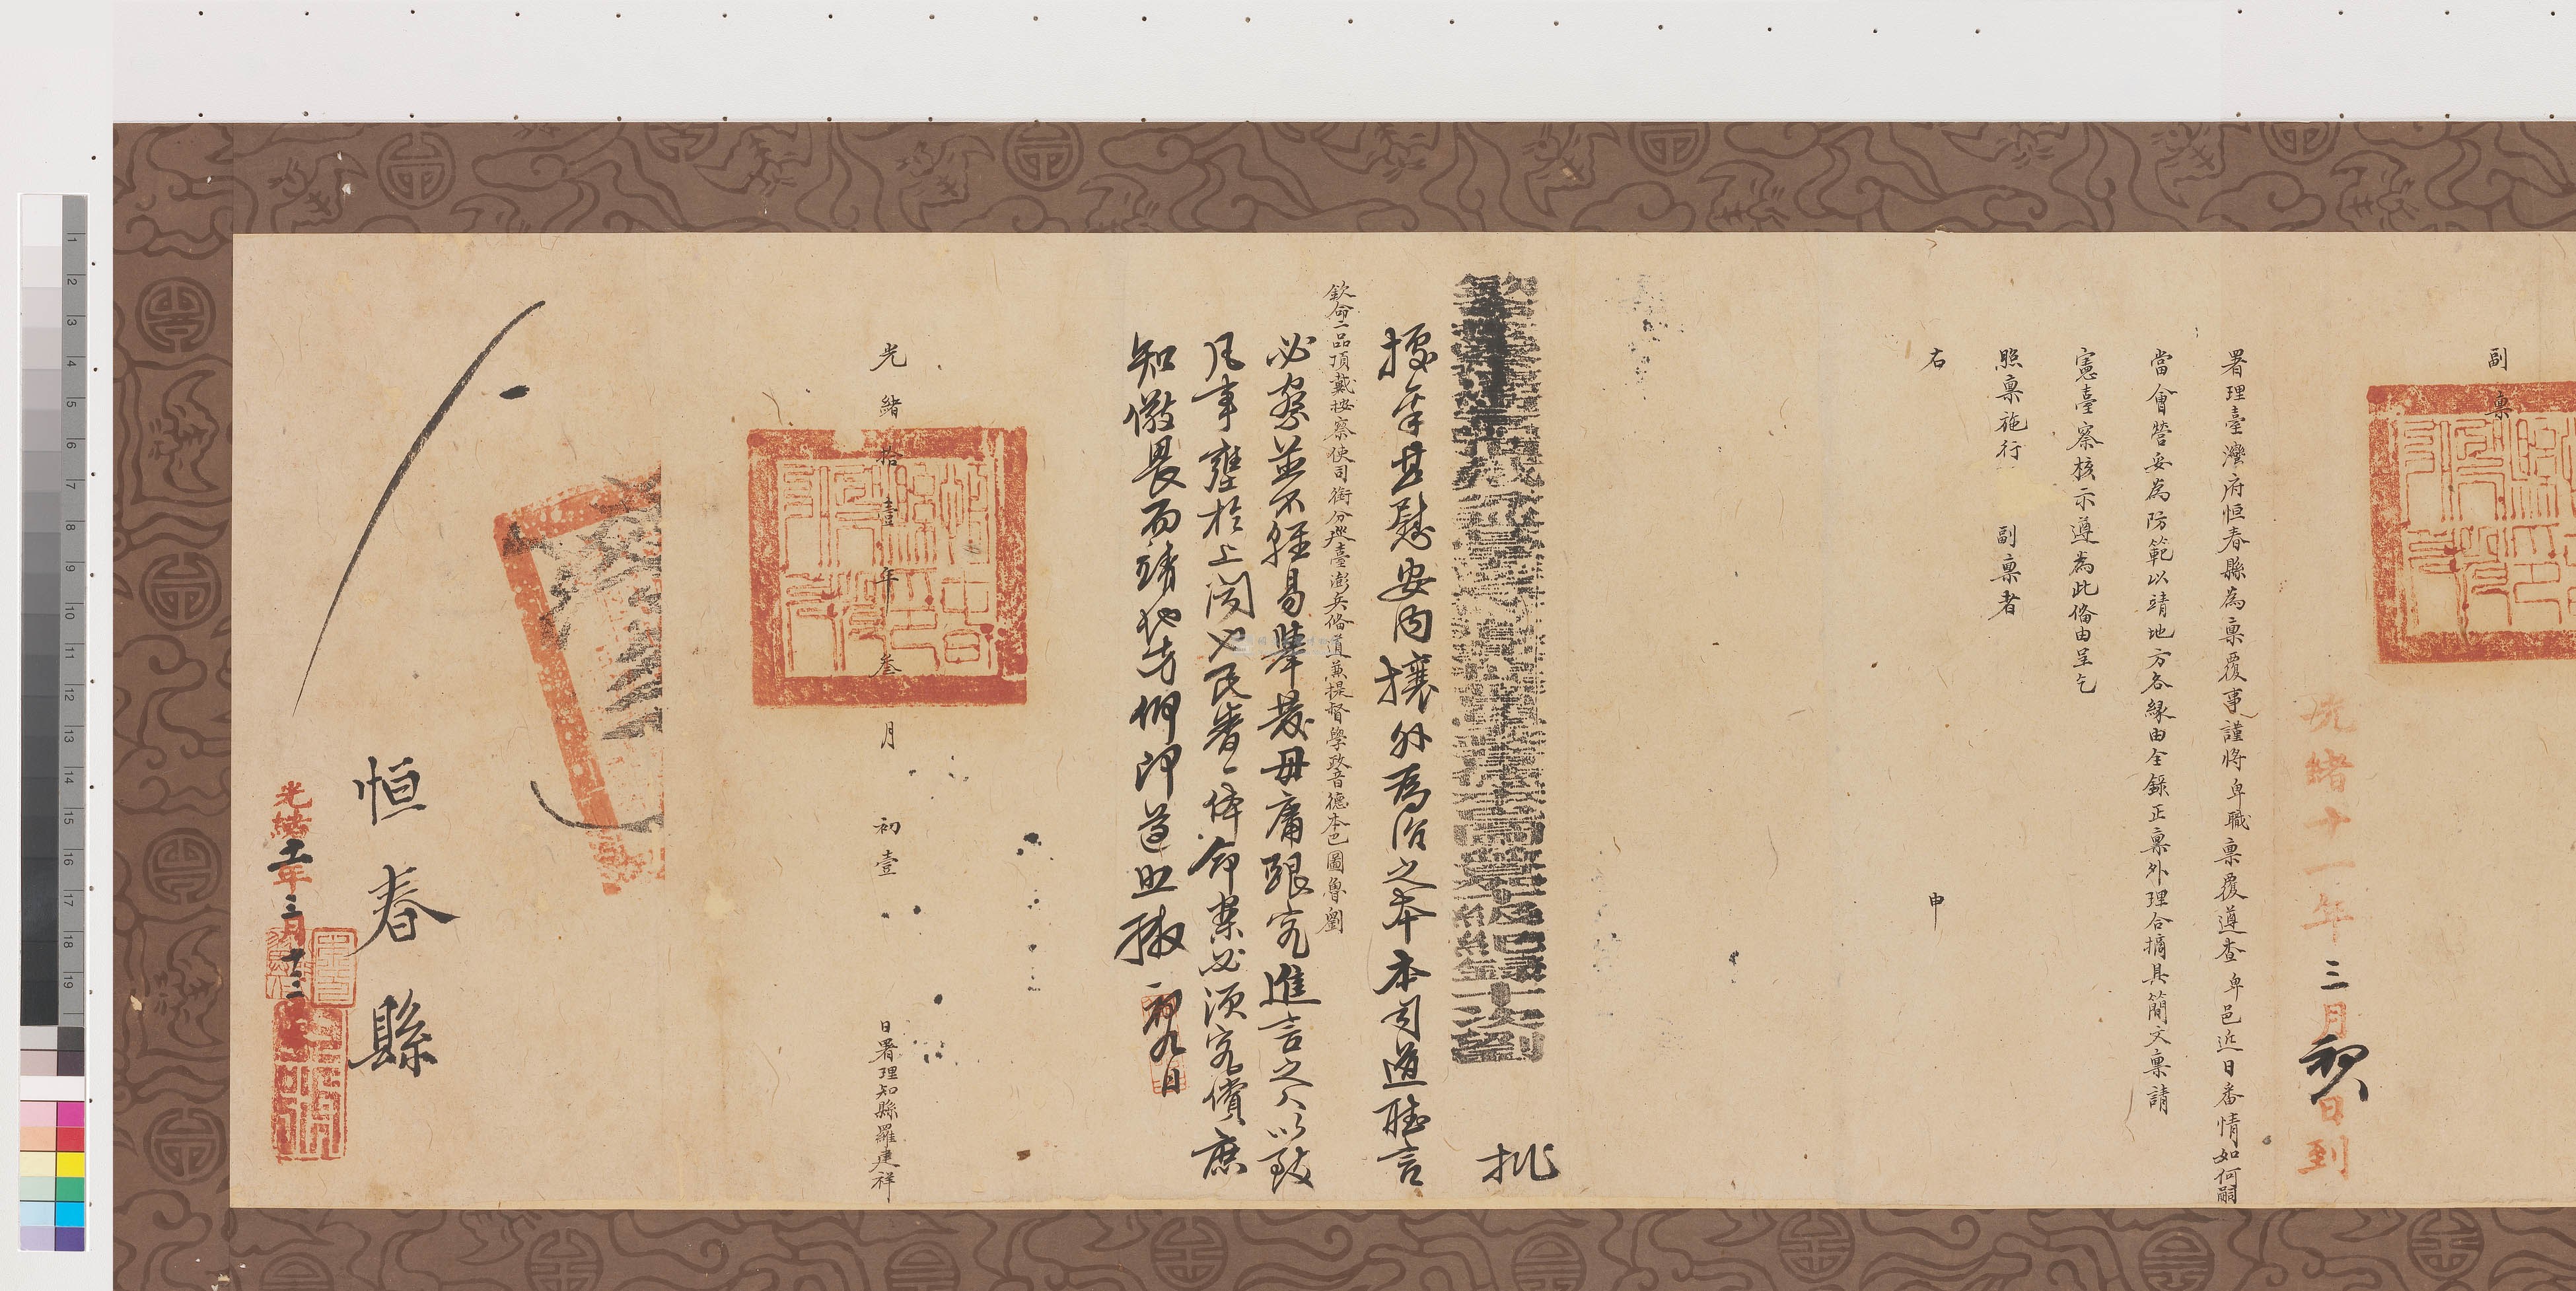 副稟
光緒十一年三月初八日到
署理臺灣府恒春縣為稟覆事謹將卑職稟覆遵查卑邑近日番情如何嗣
當會營妥為防範以靖地方各緣由全錄正稟外理合摘具簡文稟請
憲臺察核示遵為此俻由呈乞
照稟施行 副稟者
右 申
批
據稟甚慰安內攘外為治之本本司道聽言
欽命二品頂戴按察使司銜分巡臺澎兵俻道兼提督學政音德本巴圖魯劉
必察並不輕易舉發毋庸跟究進言之人以致
凡事壅於上聞也民番一体命案必須究償庶
知儆畏而靖地方仰即遵照繳 初九日
光緒拾壹年叁月初壹日署理知縣羅建祥
恒春縣
光緒十一年三月十三